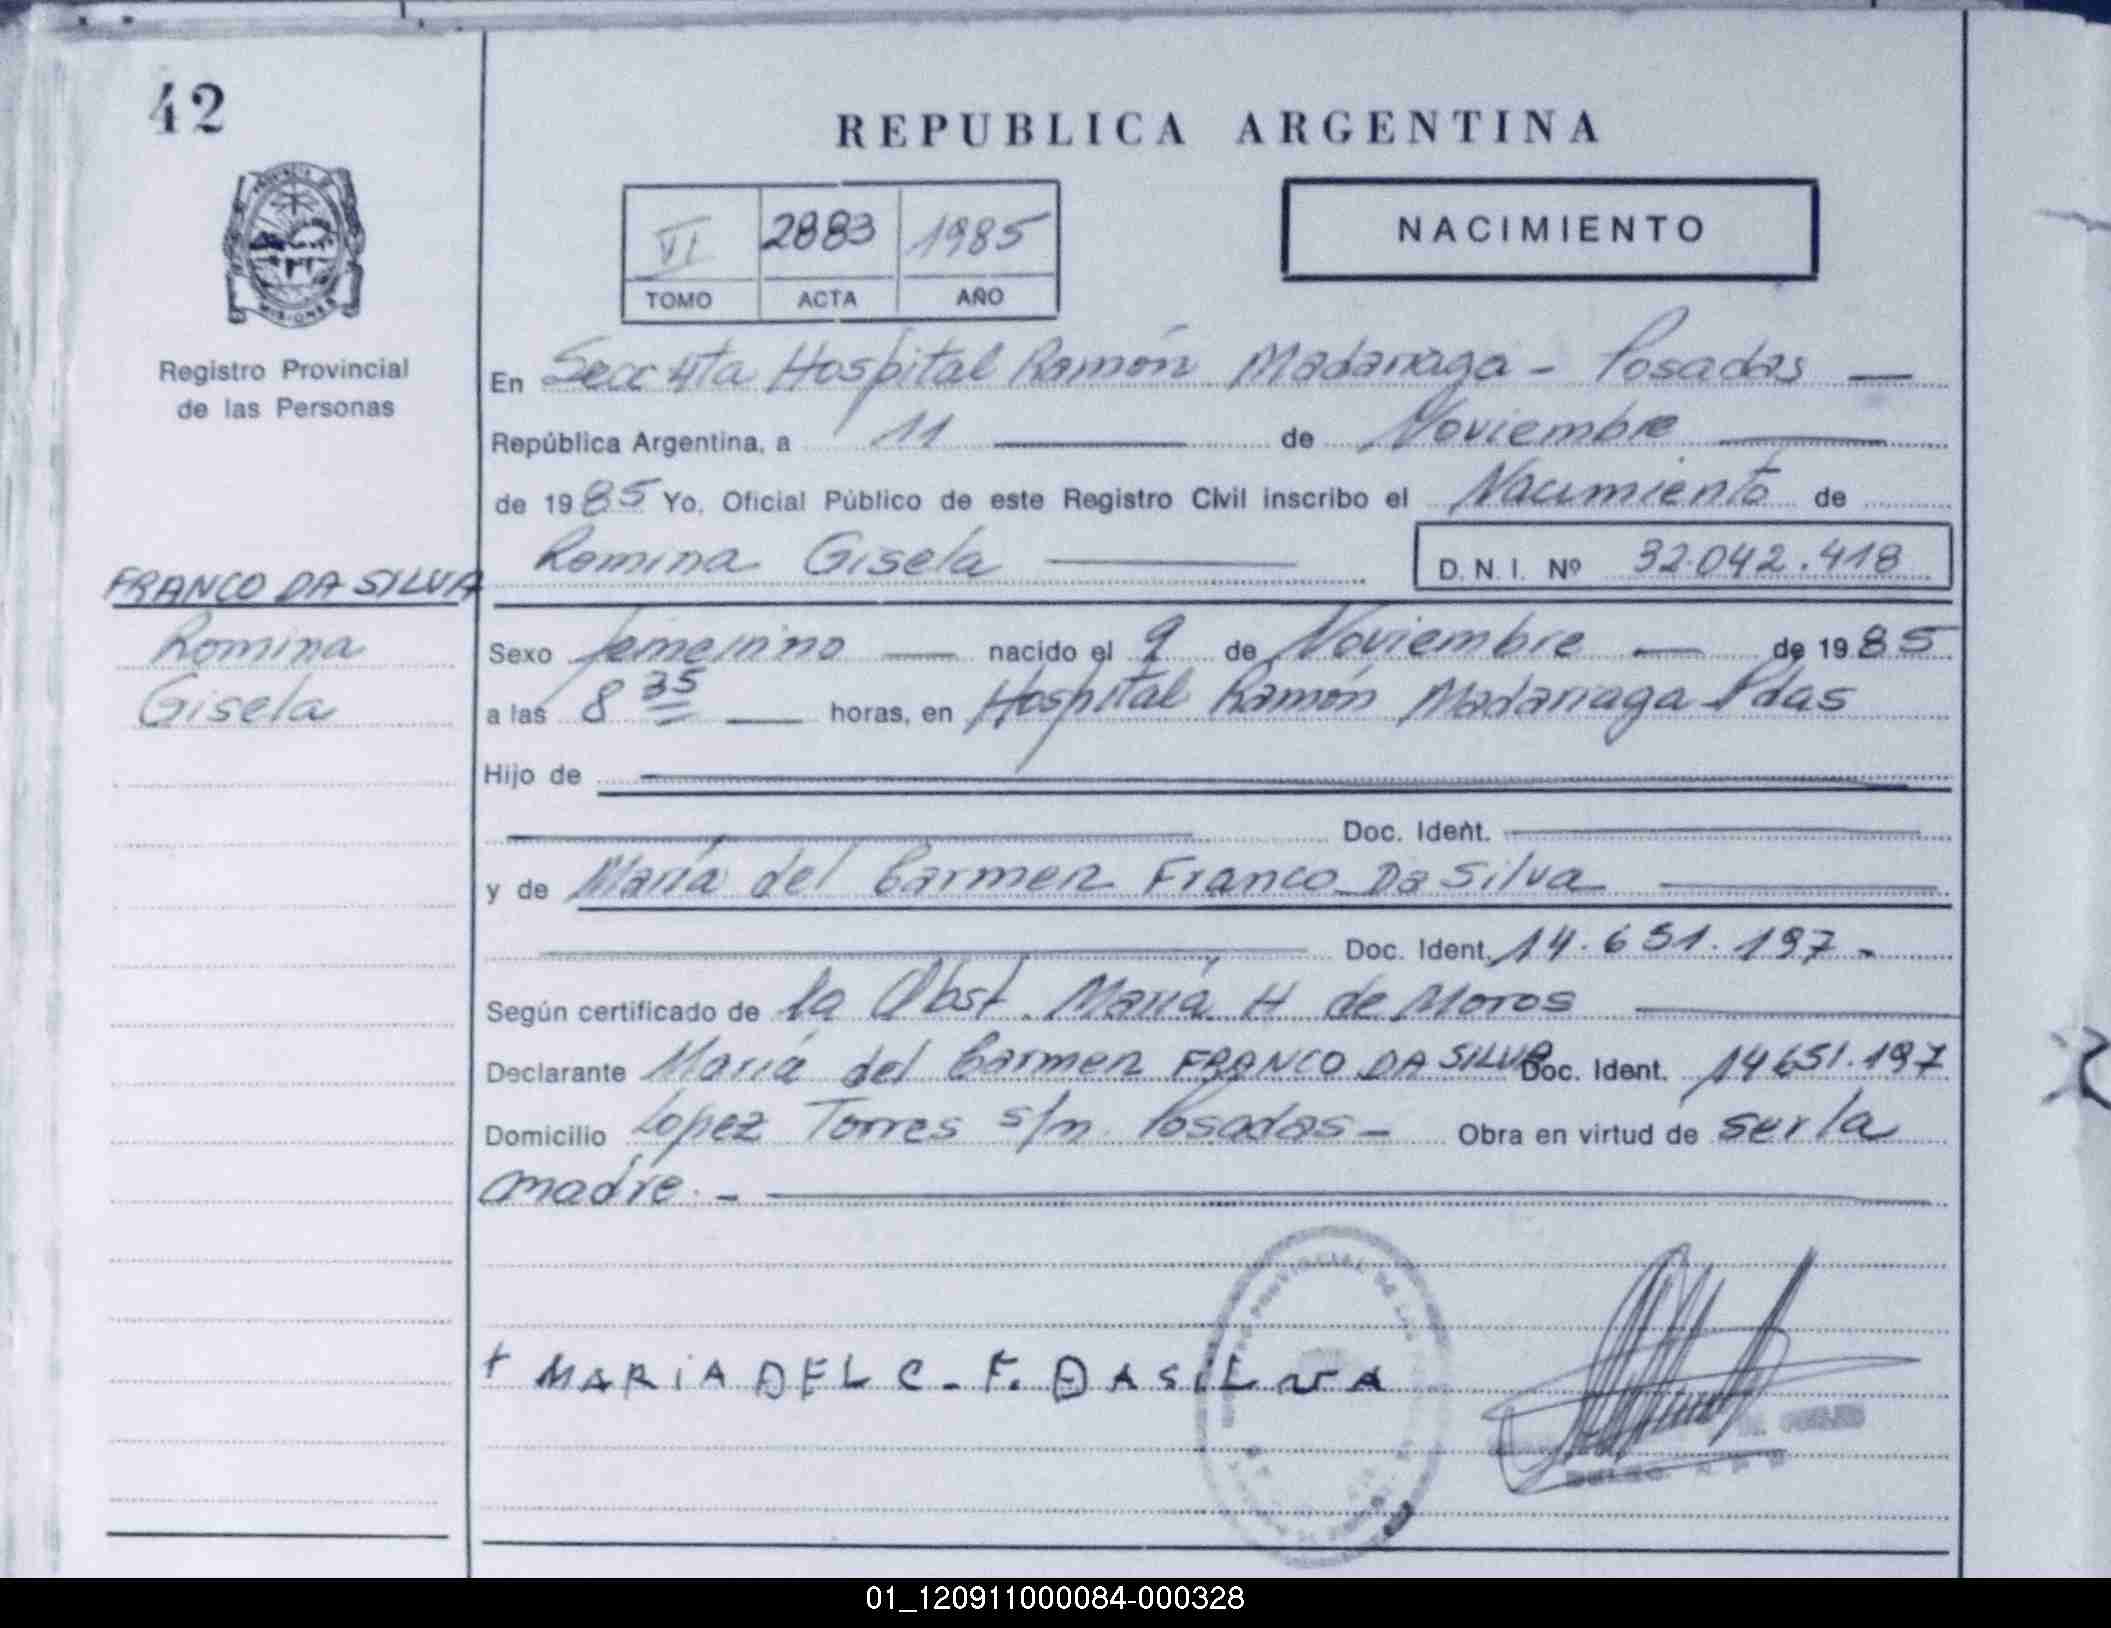 42
REPUBLICA ARGENTINA
NACIMIENTO
VI 2883 1985
TOMO ACTA AÑO
PROVINCIA DE MISIONES
Registro Provincial
de las Personas
En Secc 4ta Hospital Ramón Madariaga - Posadas
República Argentina, a 11 de Noviembre
de 1985 Yo, Oficial Público de este Registro Civil inscribo el Nacimiento de
Romina Gisela D.N.I. Nº 32.042.418
FRANCO DA SILVA
Romina
Gisela
Sexo femenino nacido el 9 de Noviembre de 1985
a las 8 35 horas, en Hospital Ramón Madariaga Pdas
Hijo de
Doc. Ident.
y de María del Carmen Franco Da Silva
Doc. Ident. 14.651.197.-
Según certificado de la Obst. María H de Moros
Declarante María del Carmen FRANCO DA SILVA Doc. Ident. 14651.197
Domicilio Lopez Torres s/n. Posadas - Obra en virtud de ser la
madre. -
+ MARiA DEL C. F. DA SiLvA
01_120911000084-000328